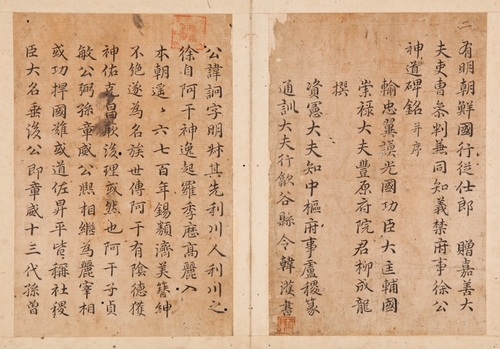 二
有明朝鮮國行從仕郎 贈嘉善大
夫吏曹參判兼同知義禁府事徐公
神道碑銘 并序
輸忠翼謨光國功臣大匡輔國
崇祿大夫豐原府院君柳成龍
撰
資憲大夫知中樞府事盧稷篆
通訓大夫行歙谷縣令韓濩書
公諱詗字明叔其先利川人利川之
徐自阿干神逸起羅季歷高麗入
本朝遙々六七百年錫類濟美簪紳
不絶遂為名族世傳阿干有陰德獲
神佑克昌厥後理或然也阿干子貞
敏公弼孫章威公熙相繼為麗宰相
或功捍國難或道佐昇平皆稱社稷
臣大名垂後公即章威十三代孫曾